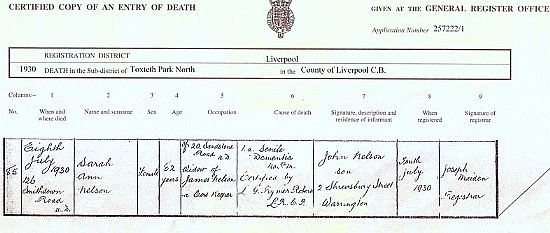 CERTIFIED COPY OF AN ENTRY OF DEATH
GIVEN AT THE GENERAL REGISTER OFFICE
Application Number 257222/1
REGISTRATION DISTRICT Liverpool
1930 DEATH in the Sub-district of Toxteth Park North in the County of Liverpool C.B.
Columns:- 1 2 3 4 5 6 7 8 9
No. When and where died Name and surname Sex Age Occupation Cause of death Signature, description and residence of informant When registered Signature of registrar
85
Eighth
July
1930
126
Smithdown
Road
u.d.
Sarah
Ann
Nelson
Female
82
years
of 20
Road u.d.
Widow of
James Nelson
a Cow Keeper
1.a. Senile
Dementia
Certified by
L.R.C.P.
John Nelson
son
2 Shrewsbury Street
Warrington
Tenth
July
1930
Joseph
Registrar